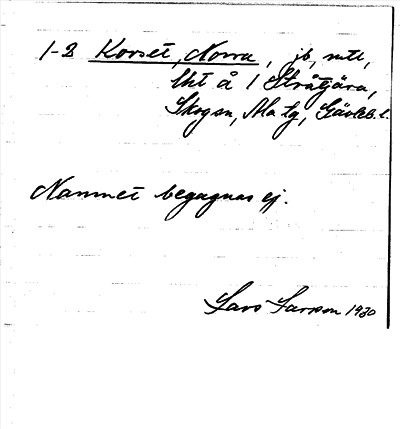 1-3 Korset, Norra, jb, mtl,
lht å 1 Stråtjära,
Skogsn, Ma lg, Gävleb. l.
Namnet begagnas ej.
Lars Larsson 1930